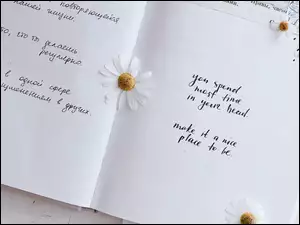 повторяющейся
нашей жизни.
то, что ты делаешь
регулярно.
в одной сфере
в других.
you spend
most time
in your head.
make it a nice
place to be.